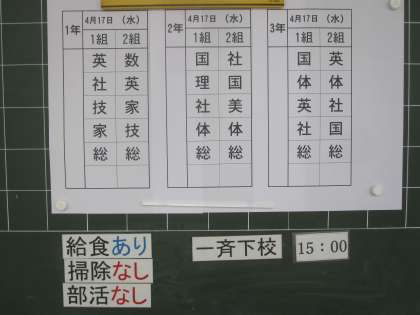 1年 4月17日 （水） 2年 4月17日 （水） 3年 4月17日 （水）
1組 2組 1組 2組 1組 2組
英 数 国 社 国 英
社 英 理 国 体 体
技 家 社 美 英 社
家 技 体 体 社 国
総 総 総 総 総 総
給食あり 一斉下校 15：00
掃除なし
部活なし